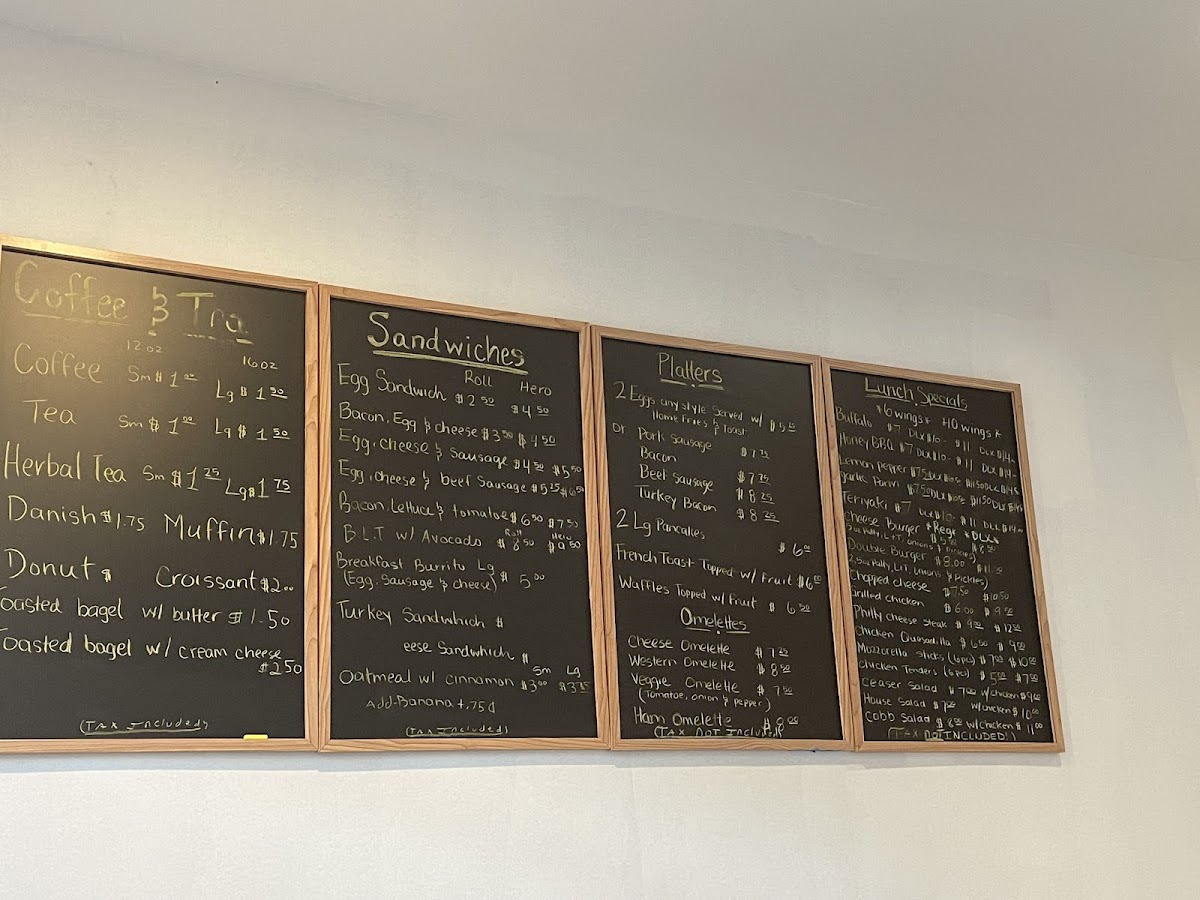 Coffee & Tea
12 oz 16 oz
Coffee Sm $1.00 Lg $1.50
Tea Sm $1.00 Lg $1.50
Herbal Tea Sm $1.25 Lg $1.75
Danish $1.75 Muffin $1.75
Donut $ Croissant $2.00
oasted bagel w/ butter $1.50
oasted bagel w/ cream cheese
$2.50
(TAX Included)
Sandwiches
Roll Hero
Egg Sandwich $2.50 $4.50
Bacon, Egg & cheese $3.50 $4.50
Egg, cheese & Sausage $4.50 $5.50
Egg, cheese & beef Sausage $5.25 $6.50
Bacon, Lettuce & tomatoe $6.50 $7.50
Roll Hero
B.L.T w/ Avocado $8.50 $9.50
Breakfast Burrito Lg
(Egg, Sausage & cheese) $5.00
Turkey Sandwhich $
eese Sandwhich $
Sm Lg
Oatmeal w/ cinnamon $3.00 $3.75
Add-Banana +.75¢
(Tax Included)
Platters
2 Eggs any style Served w/ $5.25
Home Fries & Toast
or Pork Sausage $7.75
Bacon
Beef Sausage $7.75
Turkey Bacon $8.25
$8.25
2 Lg Pancakes
$6.00
French Toast Topped w/ Fruit $6.00
Waffles Topped w/ Fruit $6.50
Omelettes
Cheese Omelette $7.25
Western Omelette $8.50
Veggie Omelette $7.50
(Tomatoe, onion & pepper)
Ham Omelette $8.00
(TAX Not Included)
Lunch Specials
*6 wings* *10 wings*
Buffalo $7 DLX $10- $11 DLX $14-
Honey BBQ $7 DLX $10- $11 DLX $14-
Lemon Pepper $7.50 DLX $11.50 DLX
garlic Parm $7.50 DLX $11.50 DLX
Teriyaki $7 DLX $10- $11 DLX $14-
Cheese Burger *Reg* *DLX*
Patty, L+T, onions & Pickles) $8.50
Double Burger $8.00 $11.50
Patty, L,T, Onions & Pickles)
Chopped cheese $7.50 $10.50
Grilled chicken $6.00 $9.00
Philly cheese steak $9.00 $12.00
Chicken Quesadilla $6.00 $9.00
Mozzarella sticks (6pcs) $7.00 $10.00
Chicken Tenders (4pcs) $5.00 $7.50
Ceaser Salad $7.00 w/chicken $9.00
House Salad $7.00 w/chicken $10.00
Cobb Salad $8.00 w/chicken $11.00
(TAX NOT INCLUDED)